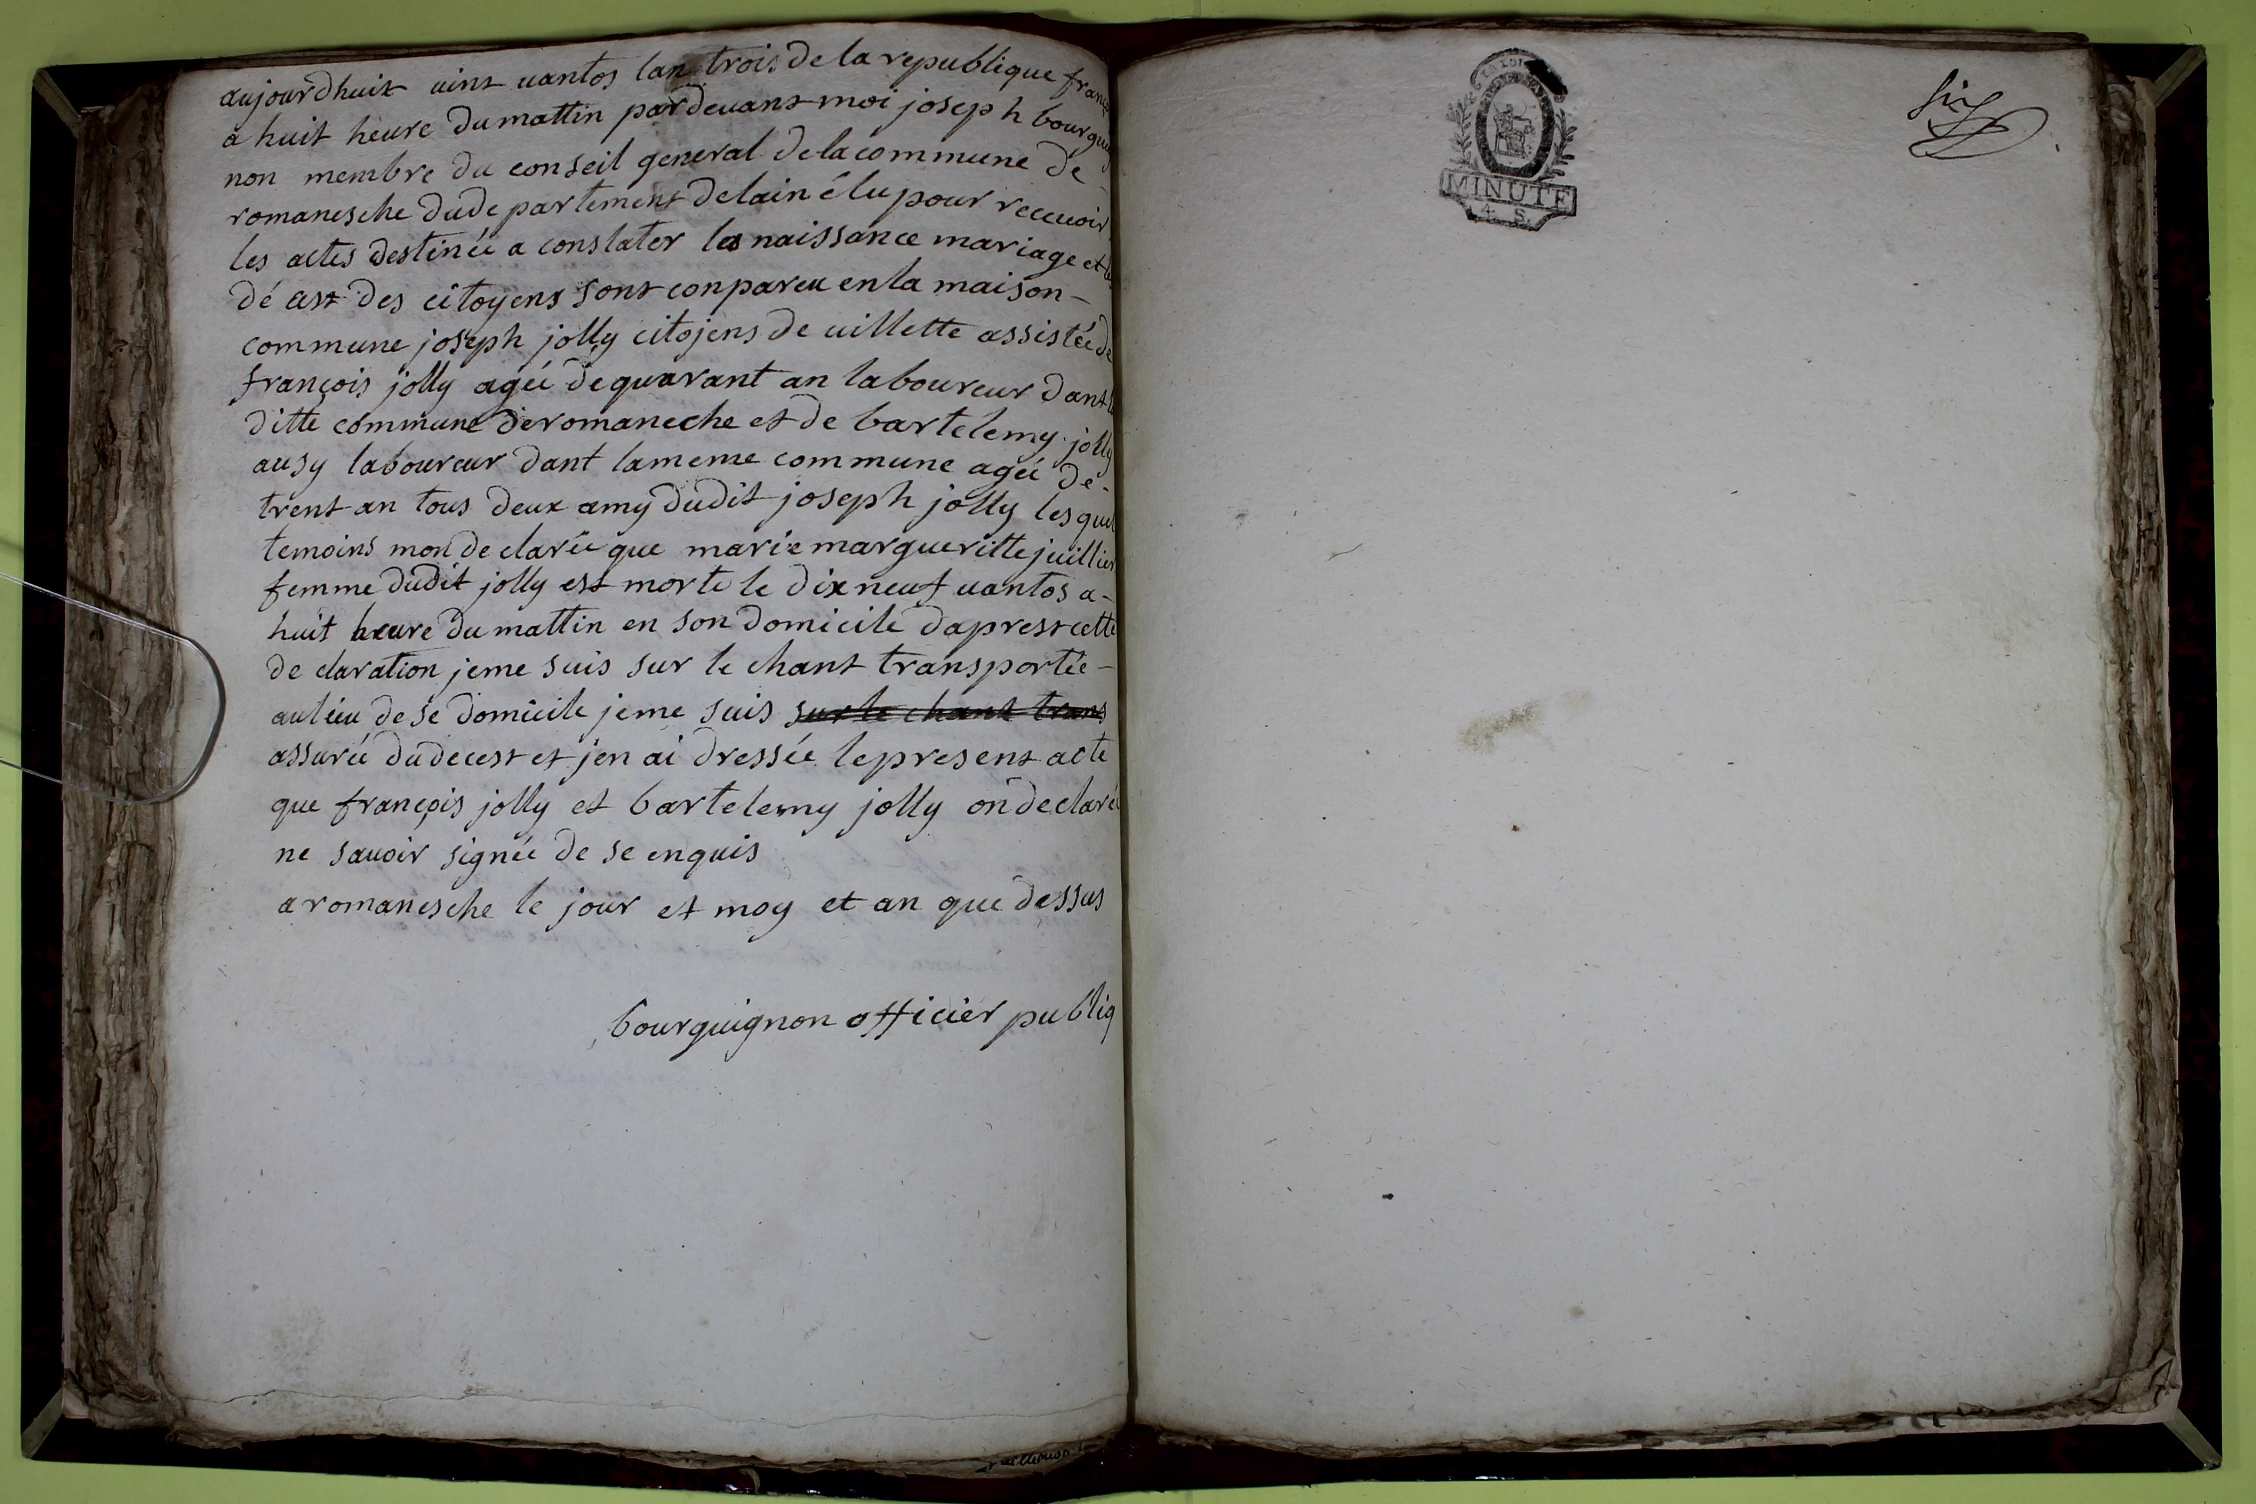 aujourdhuit uint uantos lan trois de la republique franc
a huit heure du mattin pardeuant moi joseph bourgui
non membre du conseil general de la commune de -
romanesche du departement delain élu pour receuoir
les actes destinée a constater les naissance mariage et les
dé cest des citoyens sont conpareu en la maison -
commune joseph jolly citojens de uillette assistée de
françois jolly agée de quarant an laboureur dant la
ditte commune de romaneche et de bartelemy jolly
ausy laboureur dant la meme commune agée de -
trent an tous deux amy dudit joseph jolly les quel
temoins mon de clarée que marie margueritte juillier
femme dudit jolly est morte le dix neuf uantos a -
huit heure du mattin en son domicile daprest cette
de claration jeme suis sur le chant transportée -
au lieu de se domicile jeme suis sur le chant trans
assurée du decest et jen ai dressée le present acte
que françois jolly et bartelemy jolly on declaré
ne sauoir signée de se enquis
a romanesche le jour et moy et an que dessus
bourguignon officier publiq
MINUTE
4. S.